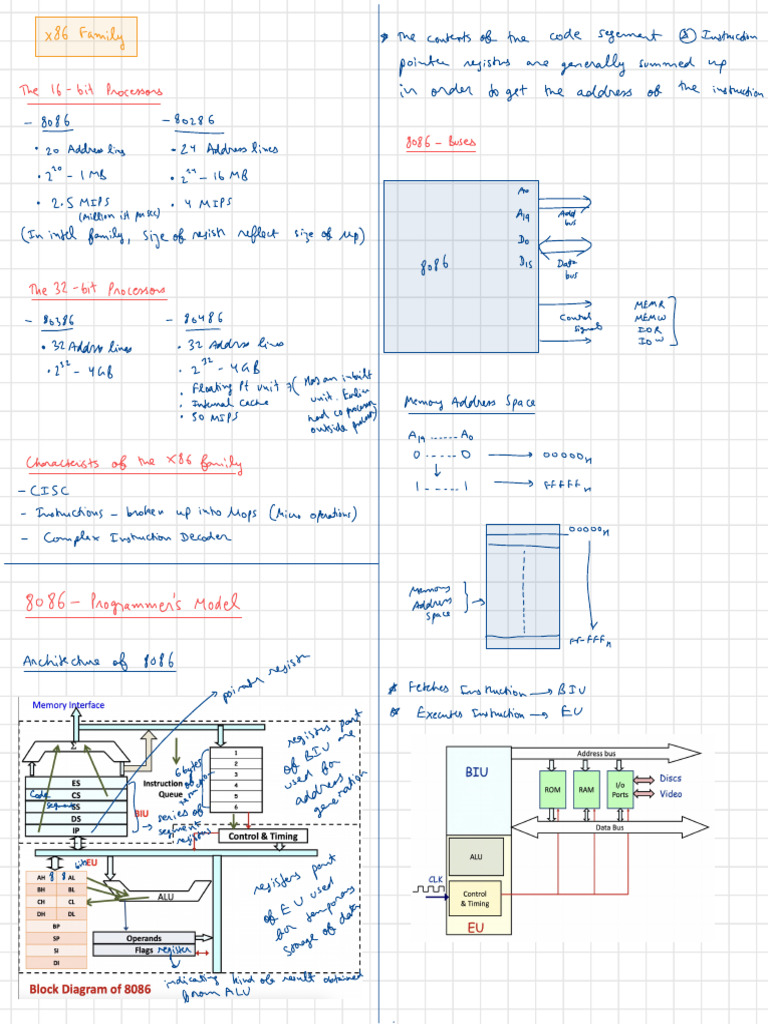 x86 Family
The 16-bit Processors
- 8086
• 20 Address lins
• 2^20 - 1 MB
• 2.5 MIPS
(Million ist per sec)
- 80286
• 24 Address lines
• 2^24 - 16 MB
• 4 MIPS
(In intel family, size of regist reflect size of up)
The 32-bit Processors
- 80386
• 32 Address lines
• 2^32 - 4GB
- 80486
• 32 Address lines
• 2^32 - 4GB
• Floating Pt unit
• Internal Cache
• 50 MIPS
(Has an inbuilt
unit. Earlier
had co processor
outside
Characterists of the X86 family
- CISC
- Instructions - broken up into Mops (Micro operations)
- Complex Instruction Decoder
8086 - Programmer's Model
Architecture of 8086
pointer regist
Memory Interface
Σ
ES
Code CS
segment SS
DS
IP
BIU
6 bytes
of
Instruction
Queue
1
2
3
4
5
6
series of
segment
registers
registers part
of BIU are
used for
address
generation
Control & Timing
EU
bits
AH 8 8 AL
BH BL
CH CL
DH DL
BP
SP
SI
DI
ALU
Operands
Flags register
registers part
of EU used
for temporary
storage of data
indicating kind of result obtained
from ALU
Block Diagram of 8086
* The contents of the code segement & Instruction
pointer registers are generally summed up
in order to get the address of the instruction
8086 - Buses
8086
A0
A19
D0
D15
Add
bus
Data
bus
Control
signals
MEMR
MEMW
IOR
IOW
Memory Address Space
A19 ...... A0
0 ...... 0 → 00000H
1 ...... 1 → FFFFFH
00000H
Memory
Address
Space
FFFFFH
* Fetches Instruction → BIU
* Executes Instruction → EU
BIU
Address bus
ROM
RAM
I/o
Ports
Discs
Video
Data Bus
ALU
CLK
Control
& Timing
EU